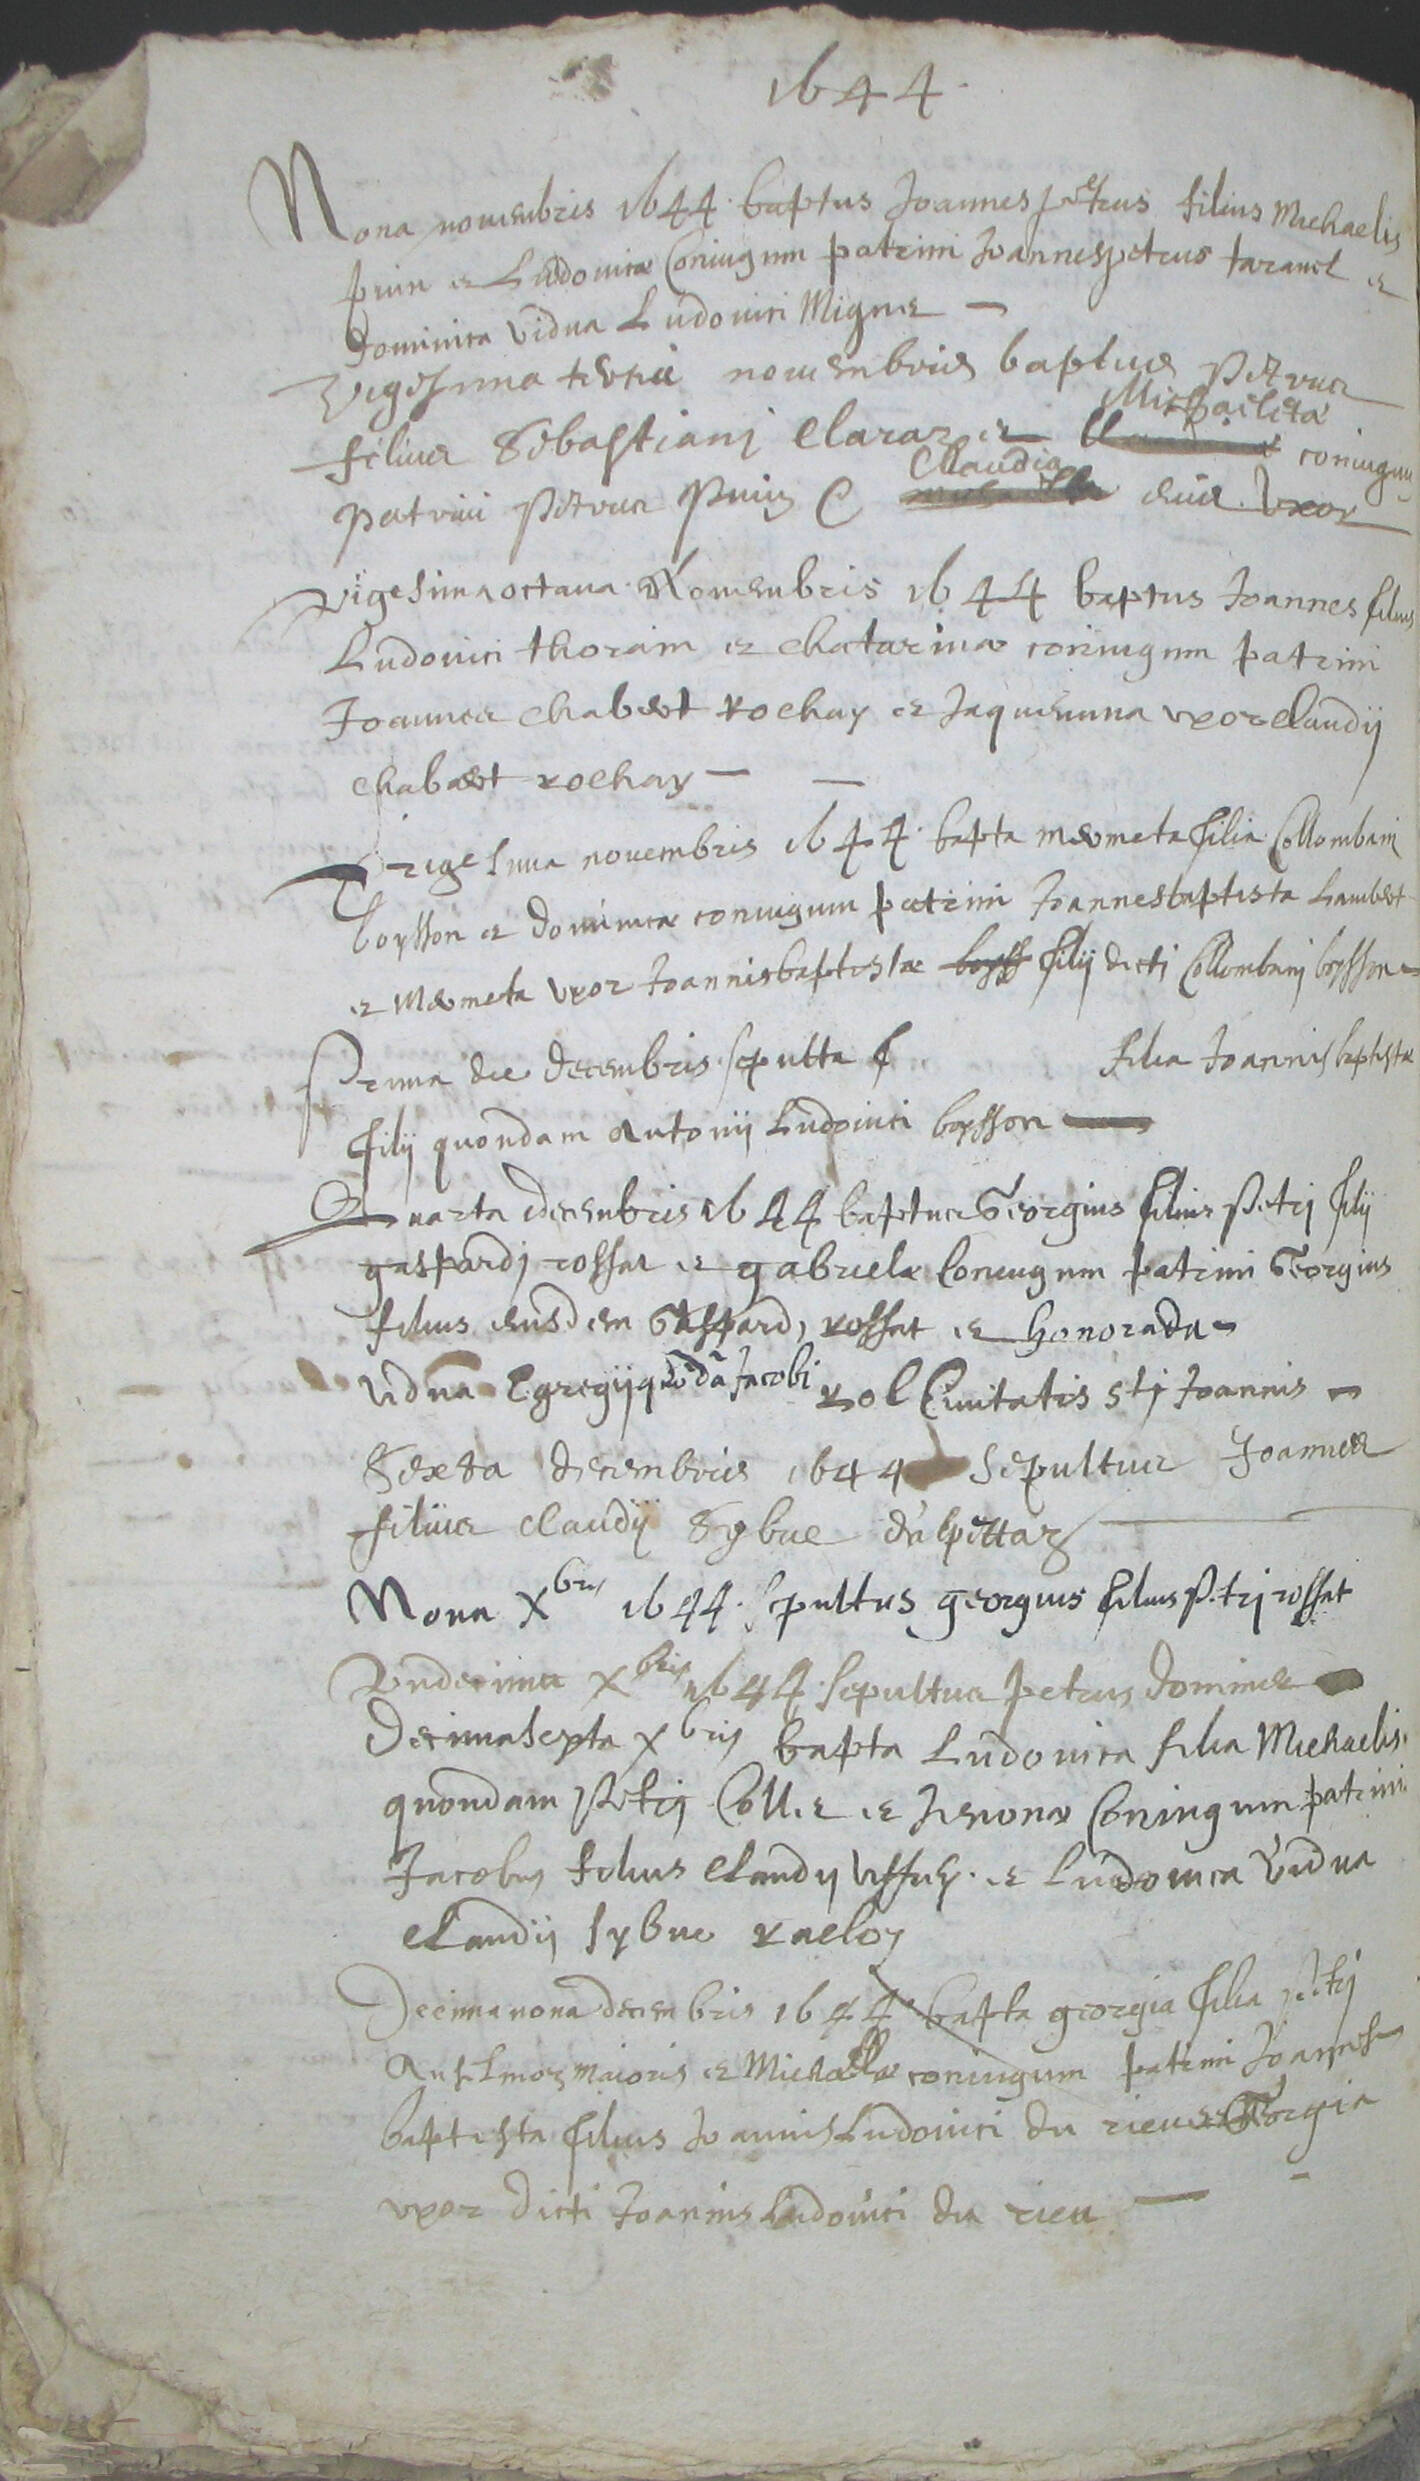 1644
Nona novembris 1644 baptus Joannes petrus filius Michaelis
prin et Ludovicæ Coniugum patrini Joannespetrus taravel et
Dominica vidua Ludovici Migne
Vigesima tertia novembris baptus Petrus
filius Sebastiani Claraz et Michaeleta coniugum
patrini Petrus Prin & Claudia eius Uxor
Vigesimaoctava Novembris 1644 baptus Joannes filius
Ludovici thoram et Chatarinæ coniugum patrini
Joannes Chabert rochay et Jaquemina uxor Claudij
Chabert rochay
Trigesima novembris 1644 bapta mermeta filia Collombani
boysson et Dominicæ coniugum patrini Joannesbaptista Lambert
et Mermeta uxor Joannisbaptistæ boyss filij dicti Collombanj boysson
Prima die Decembris sepulta f filia Joannisbaptistæ
filij quondam Antonij Ludovici boysson
Quarta decembris 1644 baptus Georgius filius Petrj filij
gaspardj rossat et gabrielæ Coniugum patrini Georgius
filius eiusdem Gaspardj rossat et honorada
vidua Egregij quõdã Jacobi rol Civitatis Stj Joannis
Sexta decembris 1644 Sepultus Joannes
filius Claudij Sybue
Nona Xbris 1644 sepultus georgius filius Petrj rossat
Undecima Xbris 1644 sepultus petrus Dominie
Decimasexta Xbris bapta Ludovica filia Michaelis
quondam Petrj Collie et Coniugum patrini
Jacobus filius Claudij et Ludovica vidua
Claudij Sybue
Decimanona decembris 1644 bapta georgia filia Petrj
maioris et Michaellæ coniugum patrini Joannes
baptista filius JoannisLudovici du rieu et Georgia
uxor dicti Joannis Ludovici du rieu